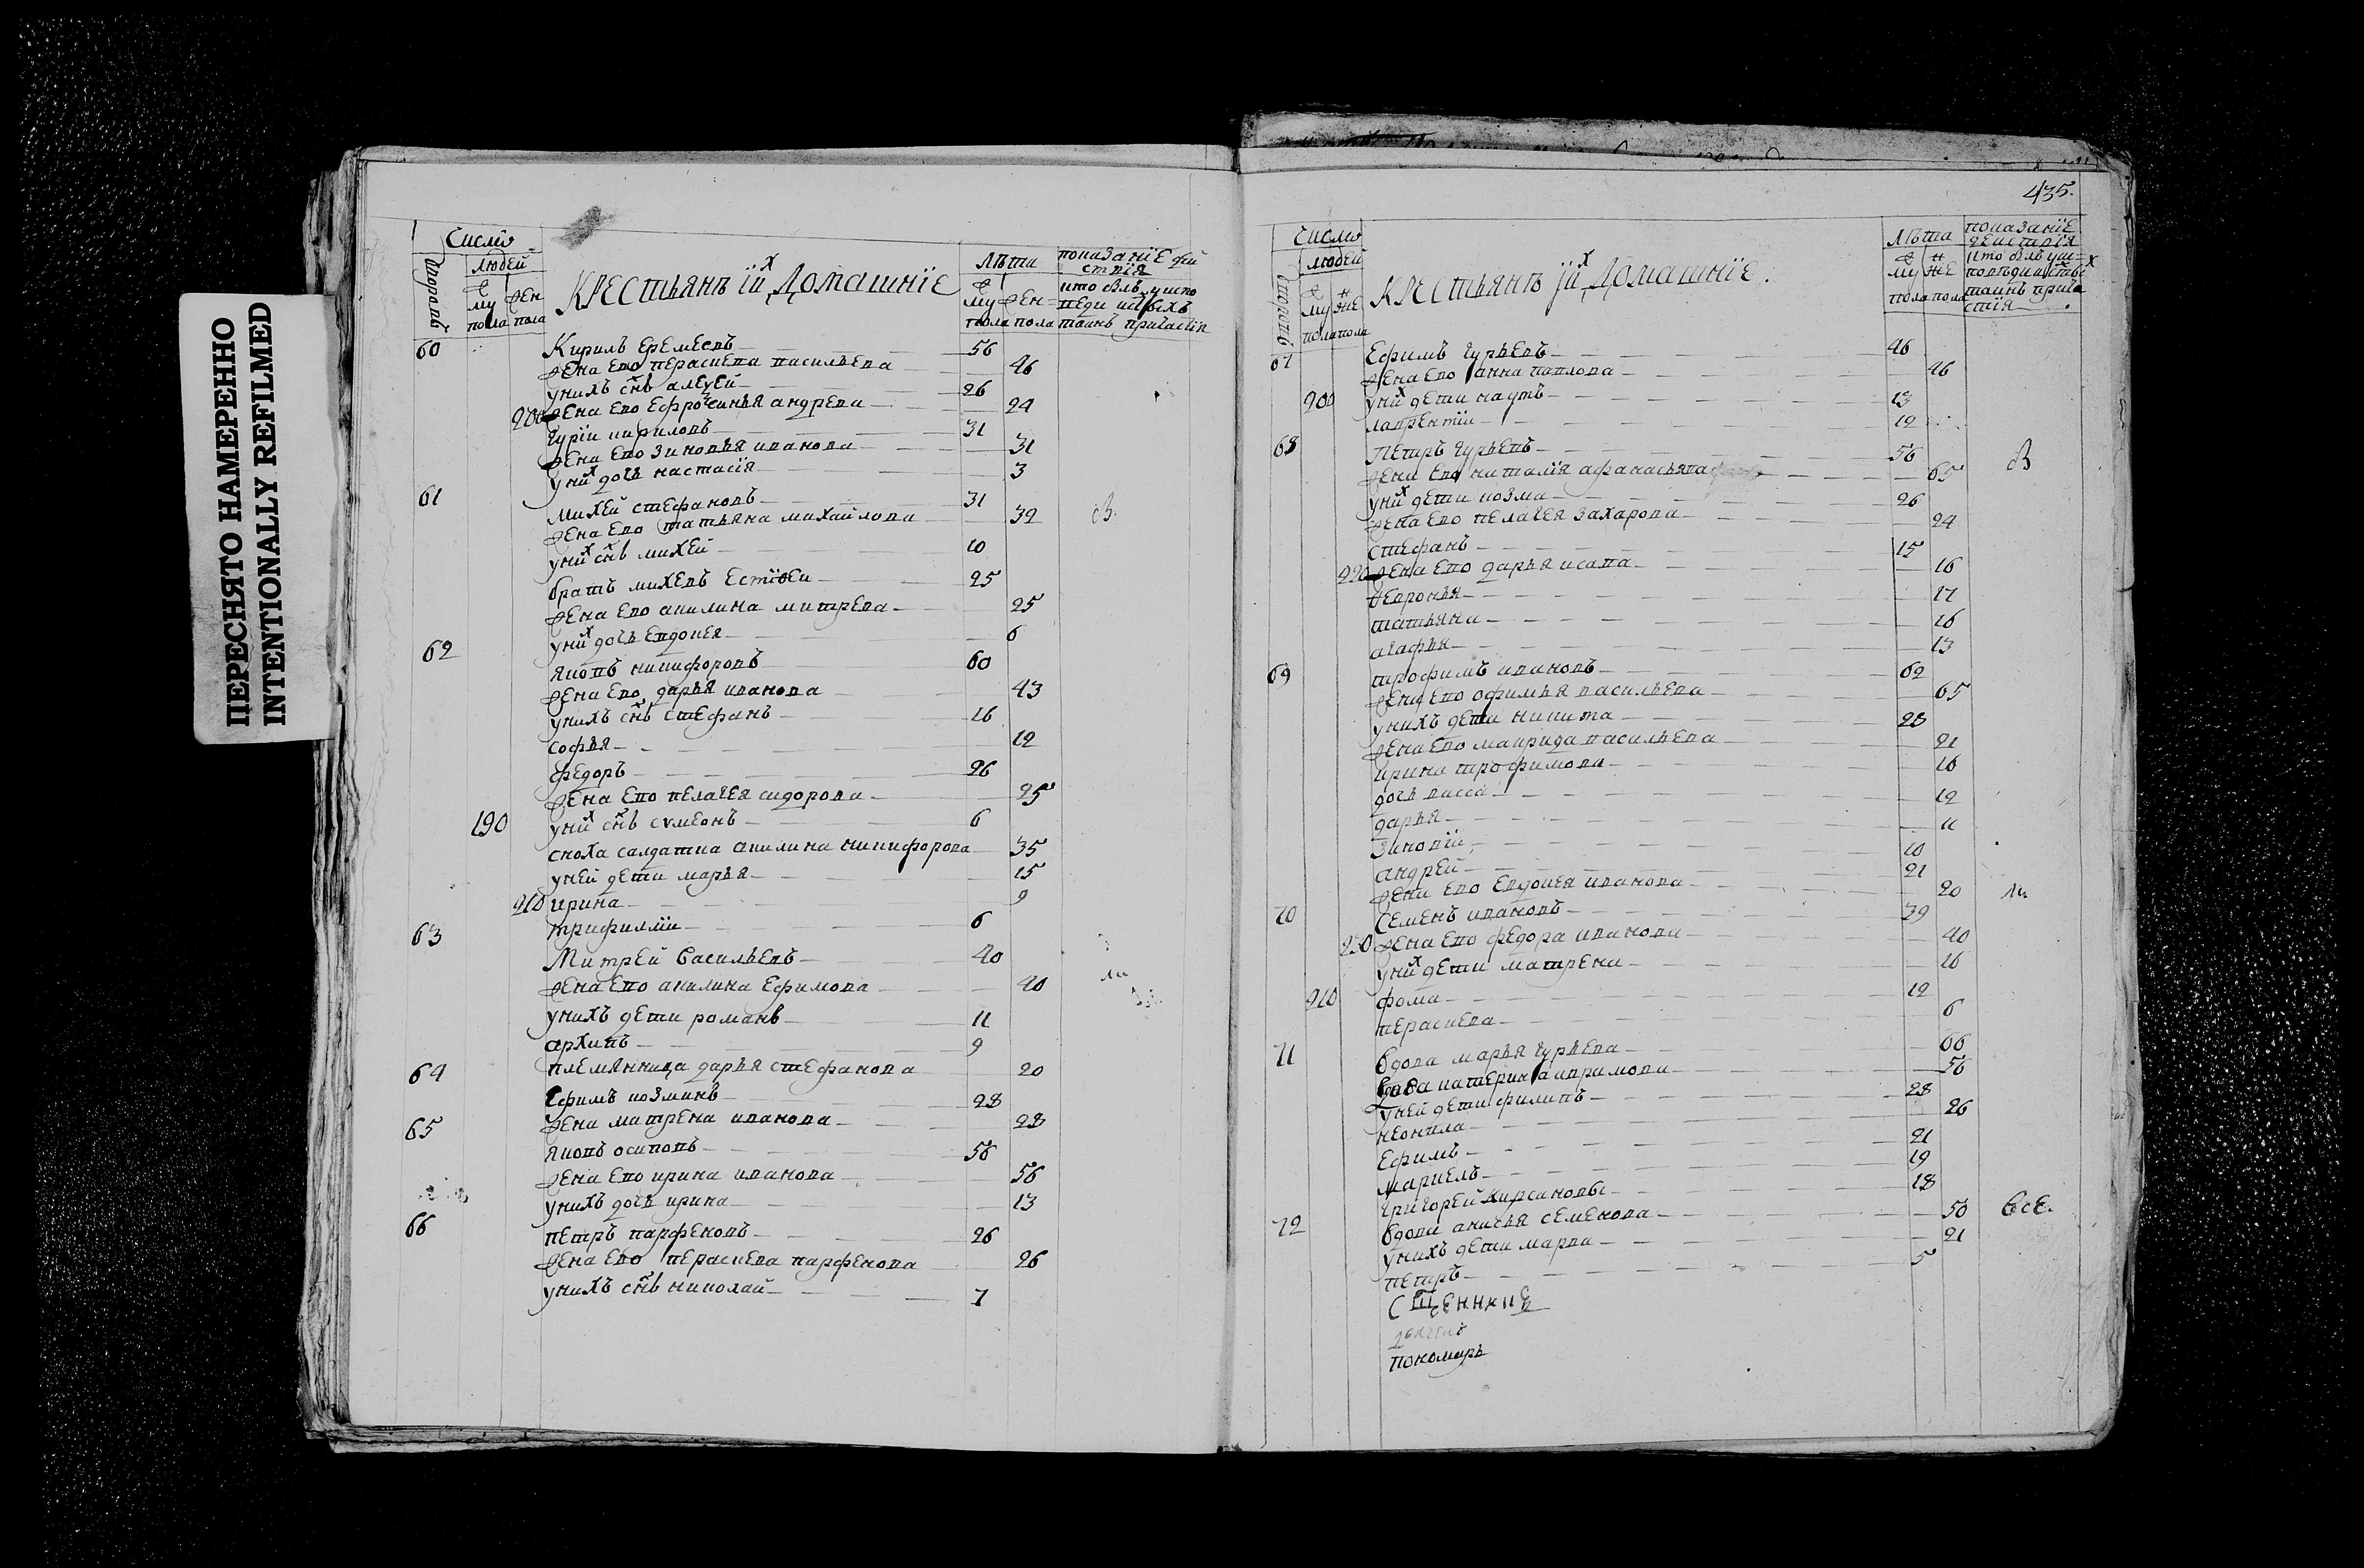 ПЕРЕСНЯТО НАМЕРЕННО
INTENTIONALLY REFILMED
Число
людей
дворовъ
му жен
пола пола
Крестьянъ їихъ Домашнїе
Лѣта
му жен
пола пола
показанїе дей
ствїя
кто былъ уиспо
веди исвятыхъ
таинъ причастїя
60 Кирилъ Еремеевъ 56
жена ево перасковя васильева 46
унихъ снъ алеѯей 26
200 жена ево Ефросинья андрева 24
Гурїи кириловъ 31
жена ево Зиновья иванова 31
уних дочь настасїя 3
61 Михей стефановъ 31
жена ево татьяна михайлова 32
уних снъ михей 10
братъ михевъ Естїфеи 25
жена ево акилина митрева 25
уних дочь Евдокея 6
62 яковъ никифоровъ 60
жена ево дарья иванова 43
унихъ снъ стефанъ 16
софья 12
федоръ 26
жена ево пелагея сидорова 25
190 уних снъ сѵмеонъ 6
сноха салдатка акилина никифорова 35
уней дети марья 15
210 ирина 9
трифиллїи 6
63 Митрей Васильевъ 40
жена ево акилина Ефимова 40
унихъ дети романъ 11
архипъ 9
племянница дарья стефанова 20
64 Ефимъ козминъ 28
жена матрена иванова 28
65 яковъ осиповъ 56
жена ево ирина иванова 56
унихъ дочь ирина 13
66 петръ парфеновъ 26
жена ево перасковя парфенова 26
унихъ снъ николай 7
435.
Число
людей
дворовъ
му же
пола пола
Крестьянъ їих Домашнїе
Лѣта
му же
пола пола
показанїе
действїя
кто былъ уис
таинъ прича
стїя
67 Ефимъ Гурьевъ 46
жена ево анна павлова 46
200 уних дети наумъ 13
лаврентїи 12
68 Петръ Гурьевъ 56
жена ево наталїя афанасьева 65
уних дети козма 26
жена ево пелагея Захарова 24
стефанъ 15
220 жена ево дарья исаева 16
февронья 17
татьяна 16
агафья 13
69 трофимъ ивановъ 62
жена ево офимья васильева 65
унихъ дети никита 23
жена ево маврида васильева 21
ирина трофимова 16
дочь васса 12
дарья 11
Зиновїй 10
андрей 21
жена ево Евдокея иванова 20
70 Семенъ ивановъ 39
230 жена ево федора иванова 40
уних дети матрена 16
210 фома 12
перасковя 6
71 Вдова марья гурьева 66
Вдова катерина аврамова 56
уней дети филипъ 28
неонила 26
Ефимъ 21
маркелъ 19
григорей кирсановы 18
72 Вдова анисья семенова 50
Все.
унихъ дети марва 21
петръ 5
пономарь